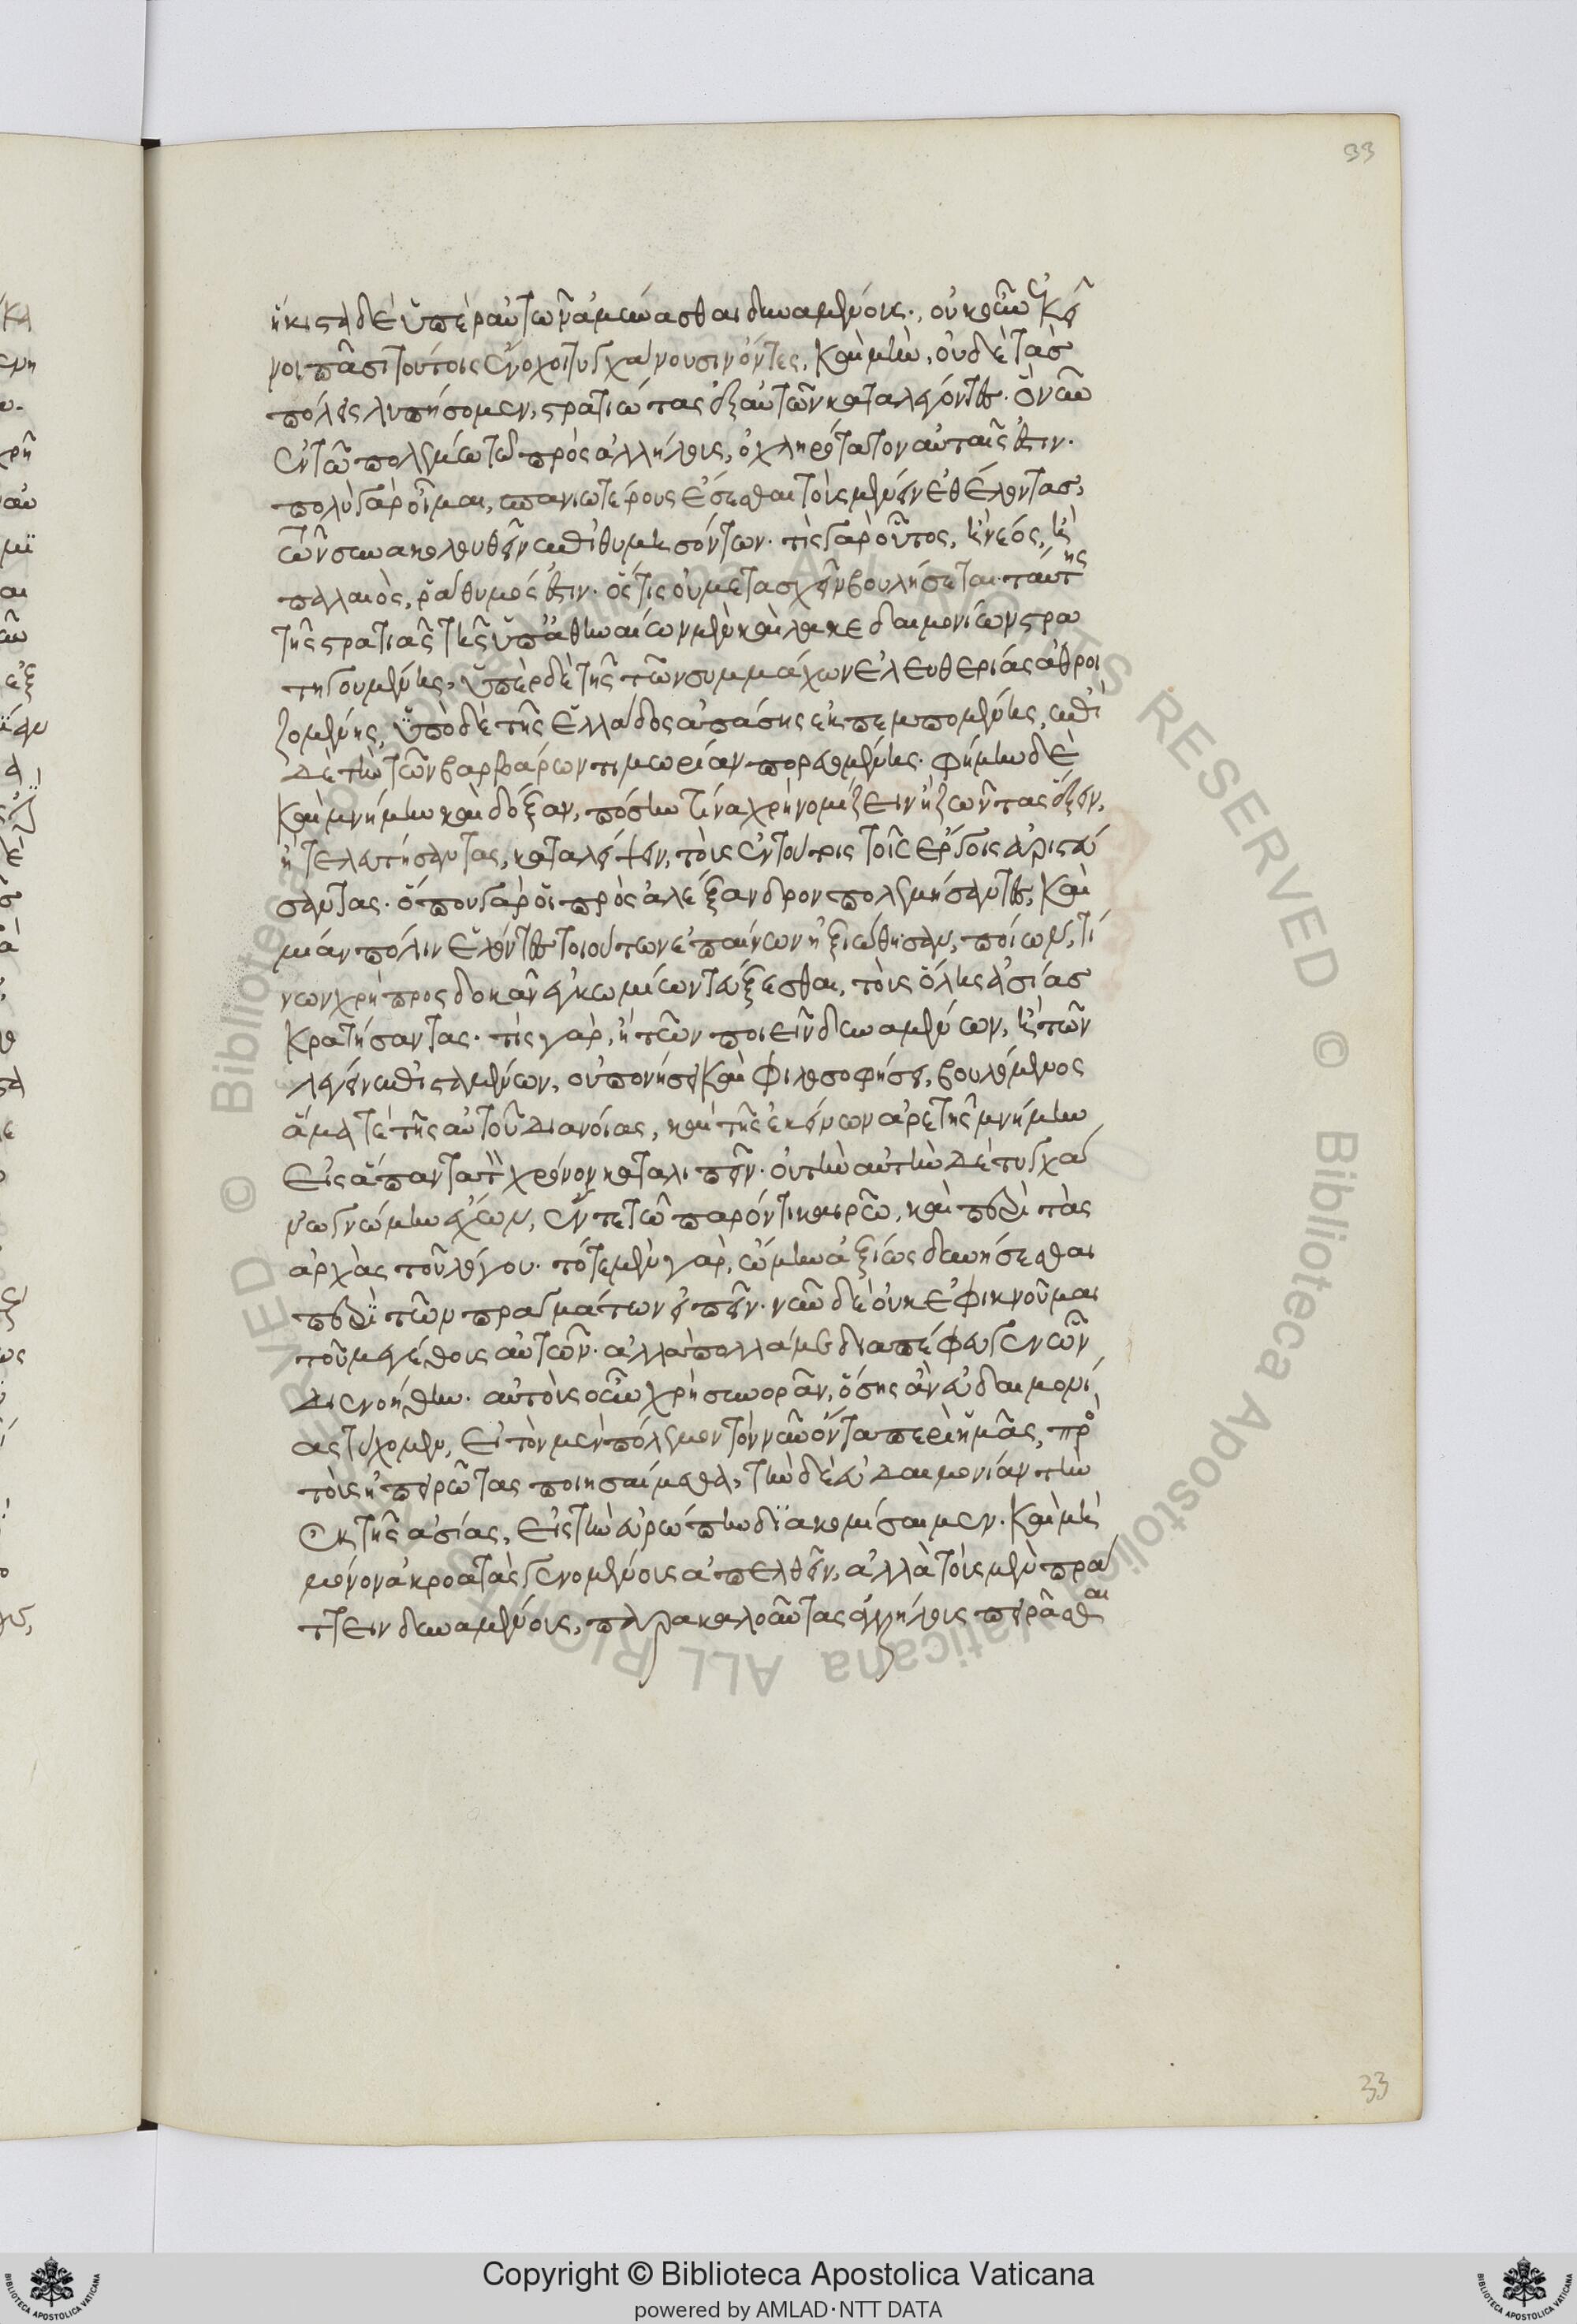 33
ἥκιστα δὲ ὑπὲρ αὑτῶν ἀμύνασθαι δυναμένοις., οὐκοῦν ἐκεῖ
νοι πᾶσι τούτοις ἔνοχοι τυγχάνουσιν ὄντες. καὶ μὴν, οὐδὲ τὰσ
πόλεις λυπήσομεν, στρατιώτας ἐξ αὐτῶν καταλέγοντες. ὃ νῦν
ἐν τῶ πολέμω τῶ πρὸς ἀλλήλους, ὀχληρότατον αὐταῖς ἐστιν.
πολὺ γὰρ οἶμαι, σπανιωτέρους ἔσεσθαι τοὺς μένειν ἐθέλοντασ,
τῶν συνακολουθεῖν ἐπιθυμησόντων. τίς γὰρ οὕτος, ἢ νέος, ἢ
παλαιὸς, ῥάθυμός ἐστιν. ὅστις οὐ μετασχεῖν βουλήσεται. ταύτης
τῆς στρατιᾶς τῆς ὑπ' ἀθηναίων μὲν καὶ λακεδαιμονίων στρα
τηγουμένης, ὑπὲρ δὲ τῆς τῶν συμμάχων ἐλευθερίας ἀθροι
ζομένης, ὑπὸ δὲ τῆς ἑλλάδος ἁπάσης ἐκπεμπομένης, ἐπὶ
δὲ τὴν τῶν βαρβάρων τιμωρίαν πορευομένης. φήμην δὲ
καὶ μνήμην καὶ δόξαν, πόσην τινὰ χρὴ νομίζειν ἢ ζῶντας ἕξειν,
ἢ τελευτήσαντας, καταλείψειν, τοὺς ἐν τούτοις τοῖς ἔργοις ἀριστεύ
σαντας. ὅπου γὰρ οἱ πρὸς ἀλέξανδρον πολεμήσαντες, καὶ
μίαν πόλιν ἑλόντες τοιούτων ἐπαίνων ἠξιώθησαν, ποίων, τί
νων χρὴ προσδοκᾶν ἐγκωμίων τεύξεσθαι, τοὺς ὅλης ἀσίασ
κρατήσαντας. τίς γὰρ, ἢ τῶν ποιεῖν δυναμένων, ἢ τῶν
λέγειν ἐπισταμένων, οὐ πονήσει καὶ φιλοσοφήσει, βουλόμενος
ἅμα τὲ τῆς αὑτοῦ διανοίας, καὶ τῆς ἐκείνων ἀρετῆς μνήμην
εἰς ἅπαντα τὸν χρόνον καταλιπεῖν. οὐ τὴν αὐτὴν δὲ τυγχά
νω γνώμην ἔχων, ἔν τε τῶ παρόντι καιρῶ, καὶ περὶ τὰς
ἀρχὰς τοῦ λόγου. τότε μὲν γὰρ, ὤμην ἀξίως δυνήσεσθαι
περὶ τῶν πραγμάτων εἰπεῖν. νῦν δὲ οὐκ ἐφικνοῦμαι
τοῦ μεγέθους αὐτῶν. ἀλλὰ πολλά με διαπέφευγεν ὧν
διενοήθην. αὐτοὺς οὖν χρὴ συνορᾶν, ὅσης ἂν εὐδαιμονί
ας τύχοιμεν, εἰ τὸν μὲν πόλεμον τὸν νῦν ὄντα περὶ ἡμᾶς, πρὸς
τοὺς ἠπειρώτας ποιησαίμεθα, τὴν δὲ εὐδαιμονίαν τὴν
ἐκ τῆς ἀσίας, εἰς τὴν εὐρώπην διακομίσαιμεν. καὶ μὴ
μόνον ἀκροατὰς γενομένους ἀπελθεῖν, ἀλλὰ τοὺς μὲν πρά
ττειν δυναμένους, παρακαλοῦντας ἀλλήλους πειρᾶσθαι
33
Copyright © Biblioteca Apostolica Vaticana
powered by AMLAD·NTT DATA